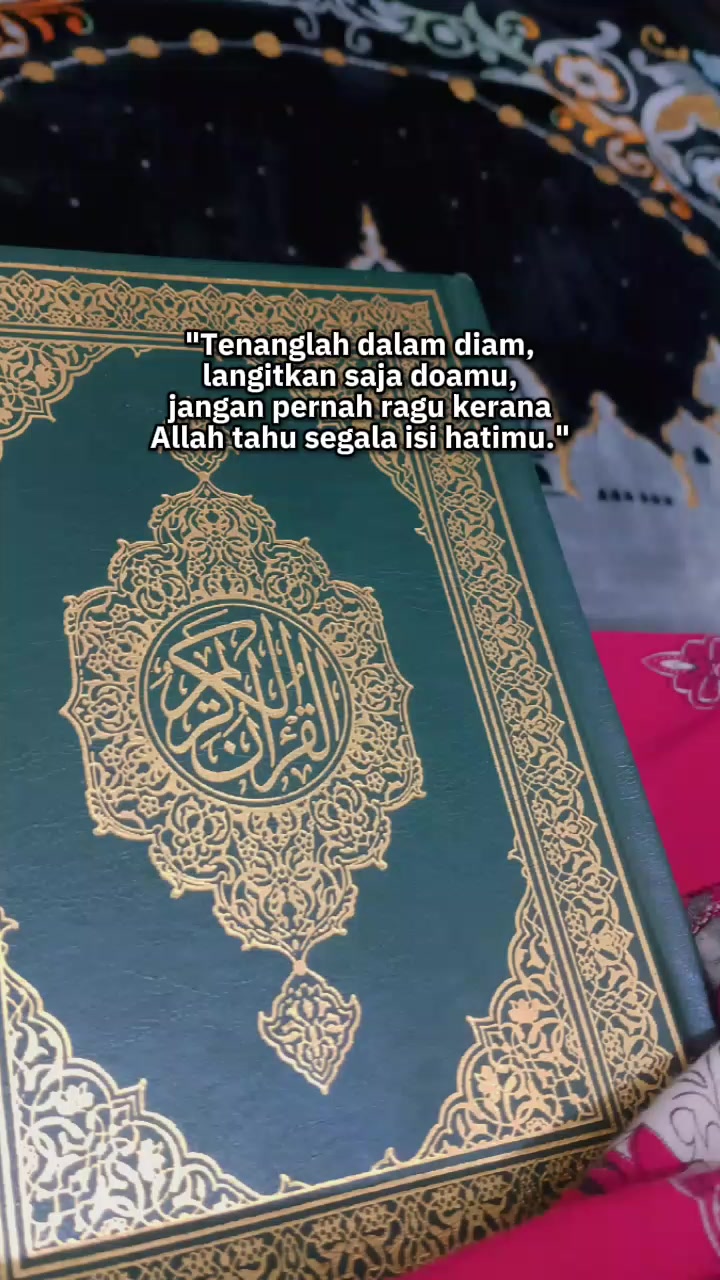 "Tenanglah dalam diam,
langitkan saja doamu,
jangan pernah ragu kerana
Allah tahu segala isi hatimu."
القرآن الكريم